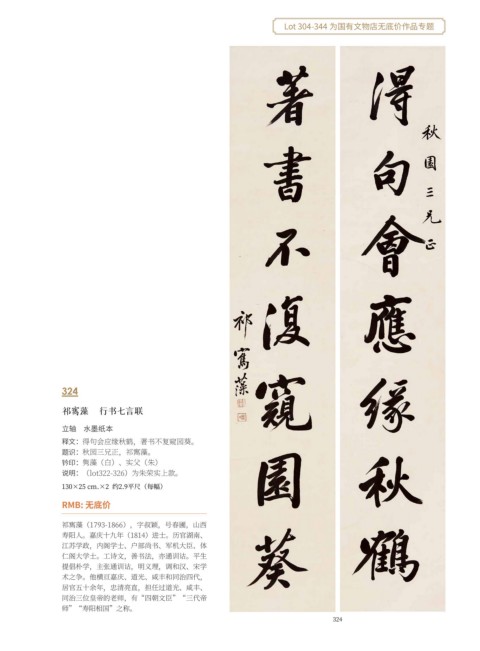 Lot 304-344 为国有文物店无底价作品专题
得句會應緣秋鶴
秋園三兄正
著書不復窺園葵
祁寯藻
324
祁寯藻 行书七言联
立轴 水墨纸本
释文:得句会应缘秋鹤,著书不复窥园葵。
题识:秋园三兄正,祁寯藻。
钤印:寯藻(白)、实父(朱)
说明:(lot322-326)为朱荣实上款。
130×25 cm.×2 约2.9平尺(每幅)
RMB: 无底价
祁寯藻(1793-1866),字叔颖,号春圃,山西
寿阳人。嘉庆十九年(1814)进士。历官湖南、
江苏学政,内阁学士、户部尚书、军机大臣、体
仁阁大学士。工诗文,善书法,亦通训诂。平生
提倡朴学,主张通训诂,明义理,调和汉、宋学
术之争。他横亘嘉庆、道光、咸丰和同治四代,
居官五十余年,忠清亮直,担任过道光、咸丰、
同治三位皇帝的老师,有“四朝文臣”“三代帝
师”“寿阳相国”之称。
324